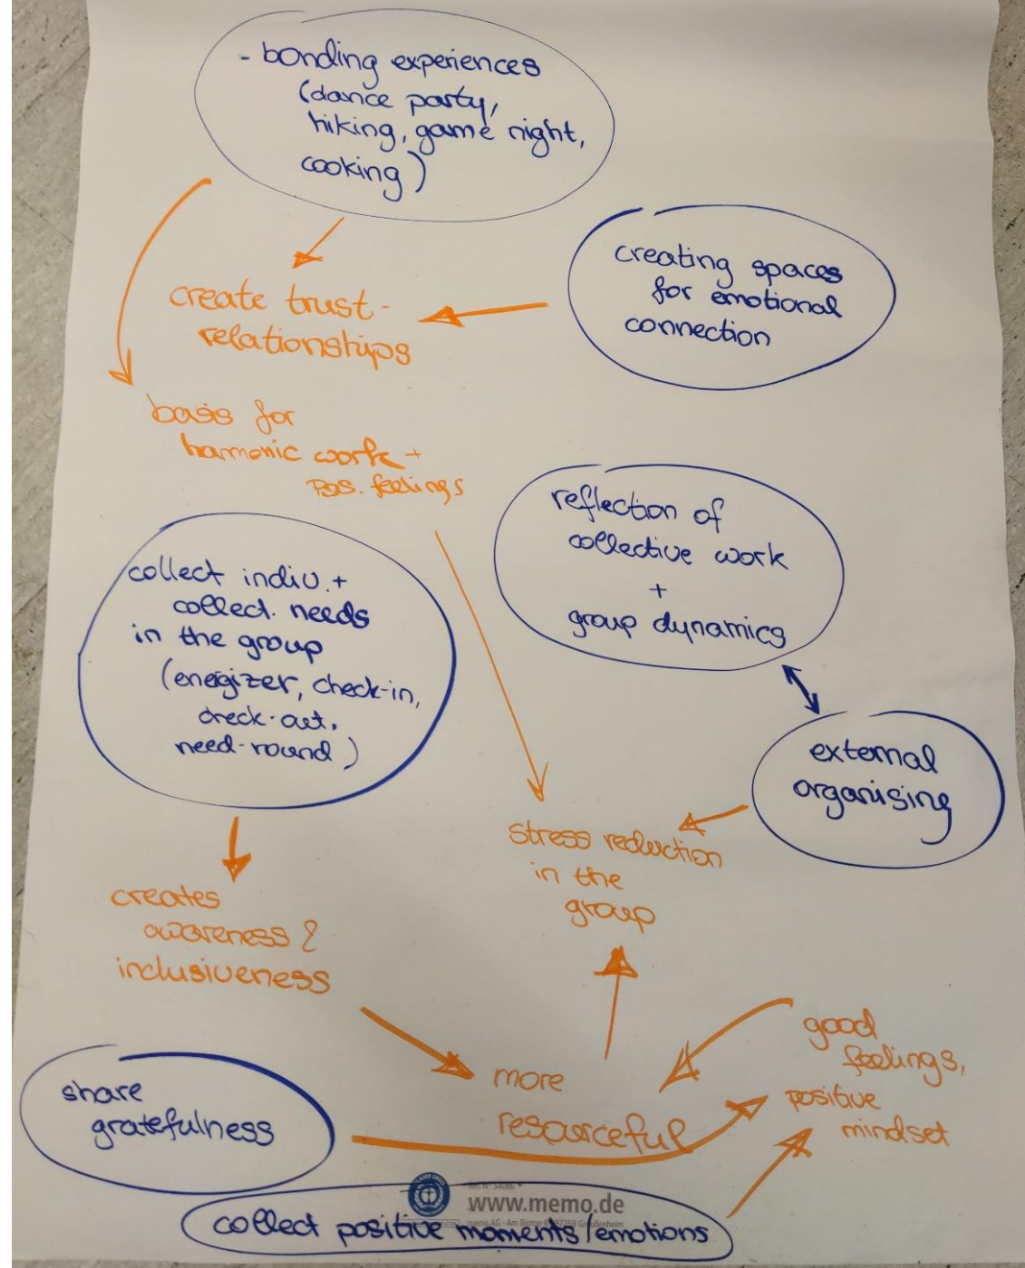 - bonding experiences
(dance party,
hiking, game night,
cooking)
creating spaces
for emotional
connection
create trust-
relationships
basis for
harmonic work +
pos. feelings
reflection of
collective work
+
group dynamics
collect indiv. +
collect. needs
in the group
(energizer, check-in,
check-out,
need-round)
external
organising
stress reduction
in the
group
creates
awareness &
inclusiveness
good
feelings,
positive
mindset
more
resourceful
share
gratefulness
www.memo.de
collect positive moments/emotions